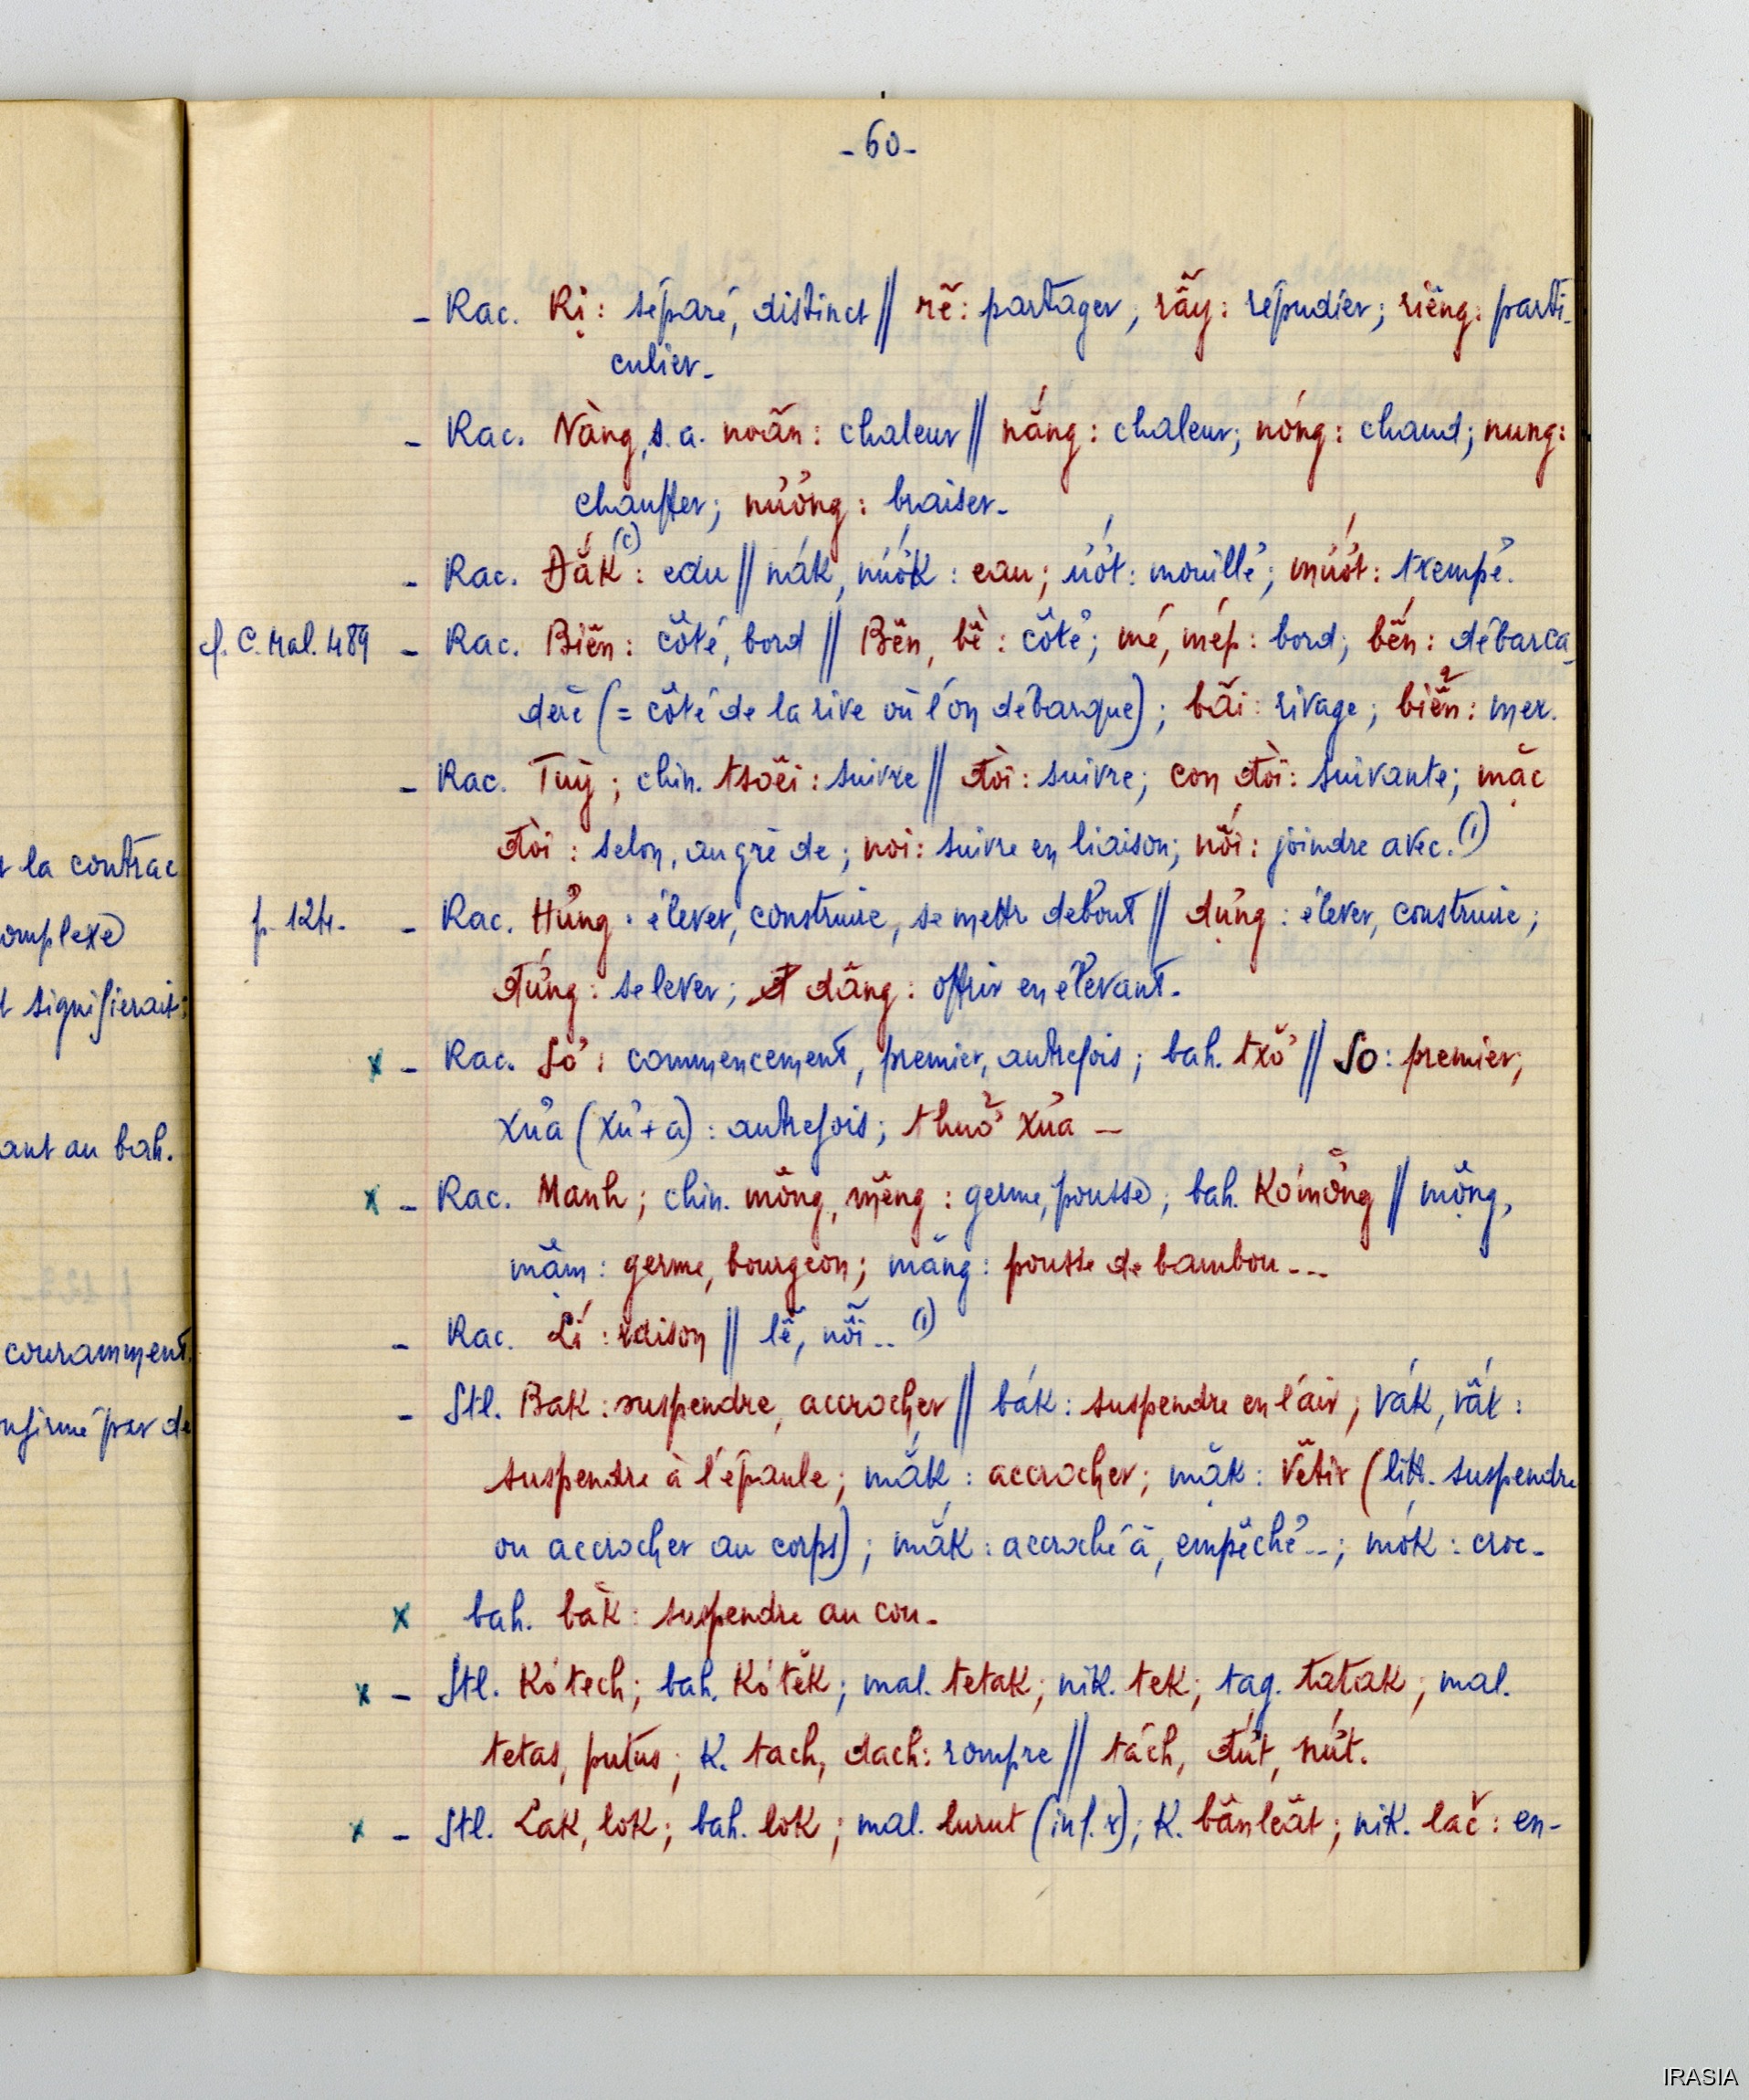 - 60 -
- Rac. Rị : séparé, distinct // rẽ : partager ; rẫy : répudier ; riêng : parti-
culier.
- Rac. Nàng, s. a. noãn : chaleur // nắng : chaleur ; nóng : chaud ; nung :
chauffer ; nướng : braiser.
- Rac. Đắk (c) : eau // nák, nước : eau ; ướt : mouillé ; mướt : trempé.
cf. C. Mal. 489 - Rac. Biên : côté, bord // Bên, bề : côté ; mé, mép : bord ; bến : débarca-
dère (= côté de la rive où l'on débarque) ; bãi : rivage ; biển : mer.
- Rac. Tuỳ ; chin. tsoêi : suivre // đòi : suivre ; con đòi : suivante ; mặc
đòi : selon, au gré de ; noi : suivre en liaison ; nối : joindre avec. (1)
p. 124. - Rac. Hưng : élever, construire, se mettre debout // dựng : élever, construire ;
đứng : se lever ; dâng : offrir en élevant.
x - Rac. Sơ : commencement, premier, autrefois ; bah. txơ̆ // So : premier ;
xưa (xư + a) : autrefois ; thuở xưa —
x - Rac. Manh ; chin. mông, mêng : germe, pousse ; bah. Kơmŏng // mộng,
mậm : germe, bourgeon ; măng : pousse de bambou ...
- Rac. Lí : raison // lẽ, nỗi .. (1)
- Stl. Bak : suspendre, accrocher // bák : suspendre en l'air ; vák, vấk :
suspendre à l'épaule ; mắk : accrocher ; mặk : vêtir (litt. suspendre
ou accrocher au corps) ; mắk : accroché à, empêché .. ; mók : croc.
x bah. băk : suspendre au cou.
x - Stl. Kơtech ; bah. Kơtĕk ; mal. tetak ; nik. tek ; tag. tatak ; mal.
tetas, putus ; K. tach, dach : rompre // tách, đứt, nứt.
x - Stl. Lak, lok ; bah. lok ; mal. lurut (inf. r) ; K. bânleăt ; nik. lač : en-
t la contrac
omplexe
t signifierait :
ant au bah.
couramment
nfirmé par de
IRASIA